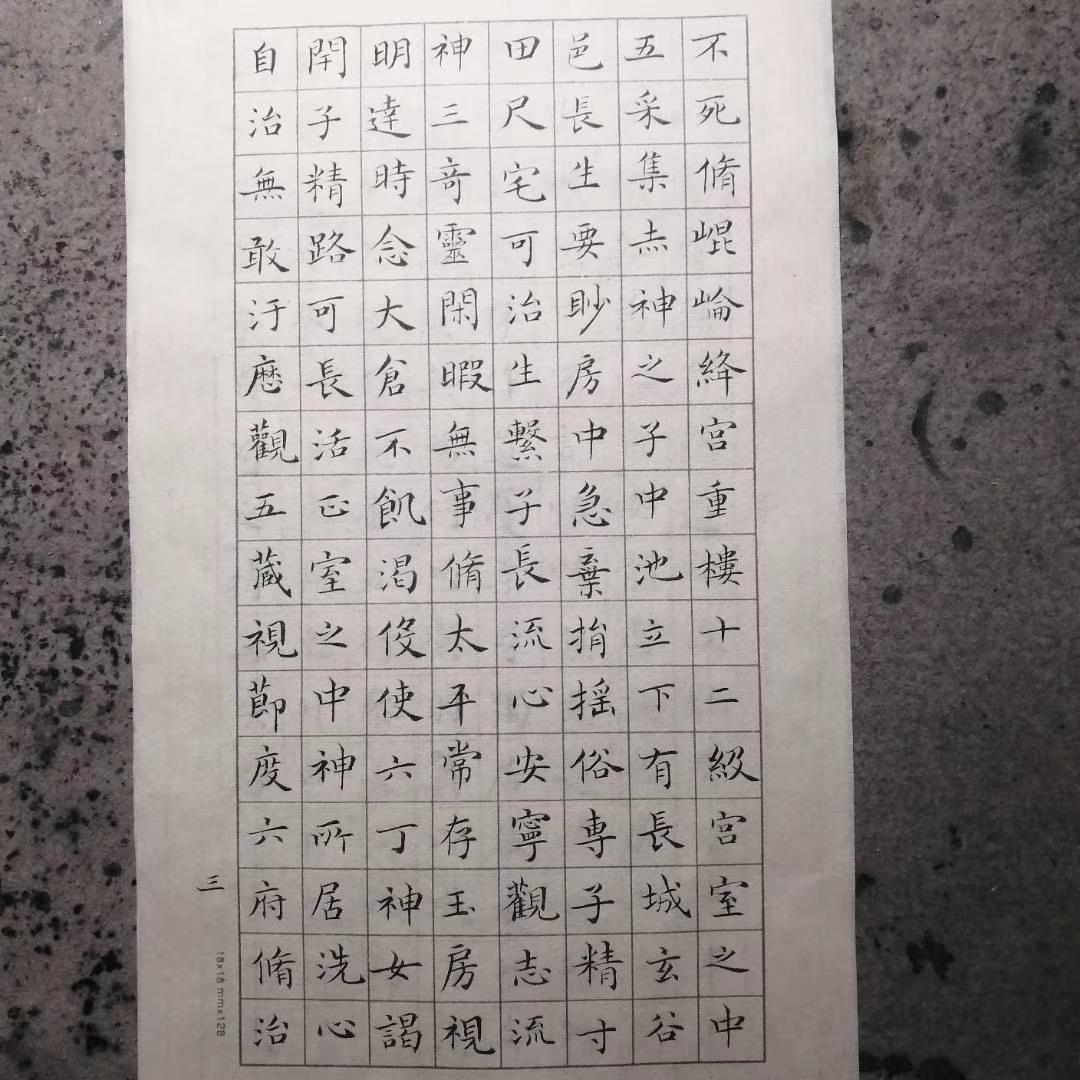 不死脩崐崘絳宮重樓十二級宮室之中
五采集赤神之子中池立下有長城玄谷
邑長生要眇房中急棄捐搖俗専子精寸
田尺宅可治生繫子長流心安寧觀志流
神三竒靈閑暇無事脩太平常存玉房視
明達時念大倉不飢渴伇使六丁神女謁
閇子精路可長活正室之中神所居洗心
自治無敢汙歷觀五藏視節度六府脩治
三
18x18 mmx128